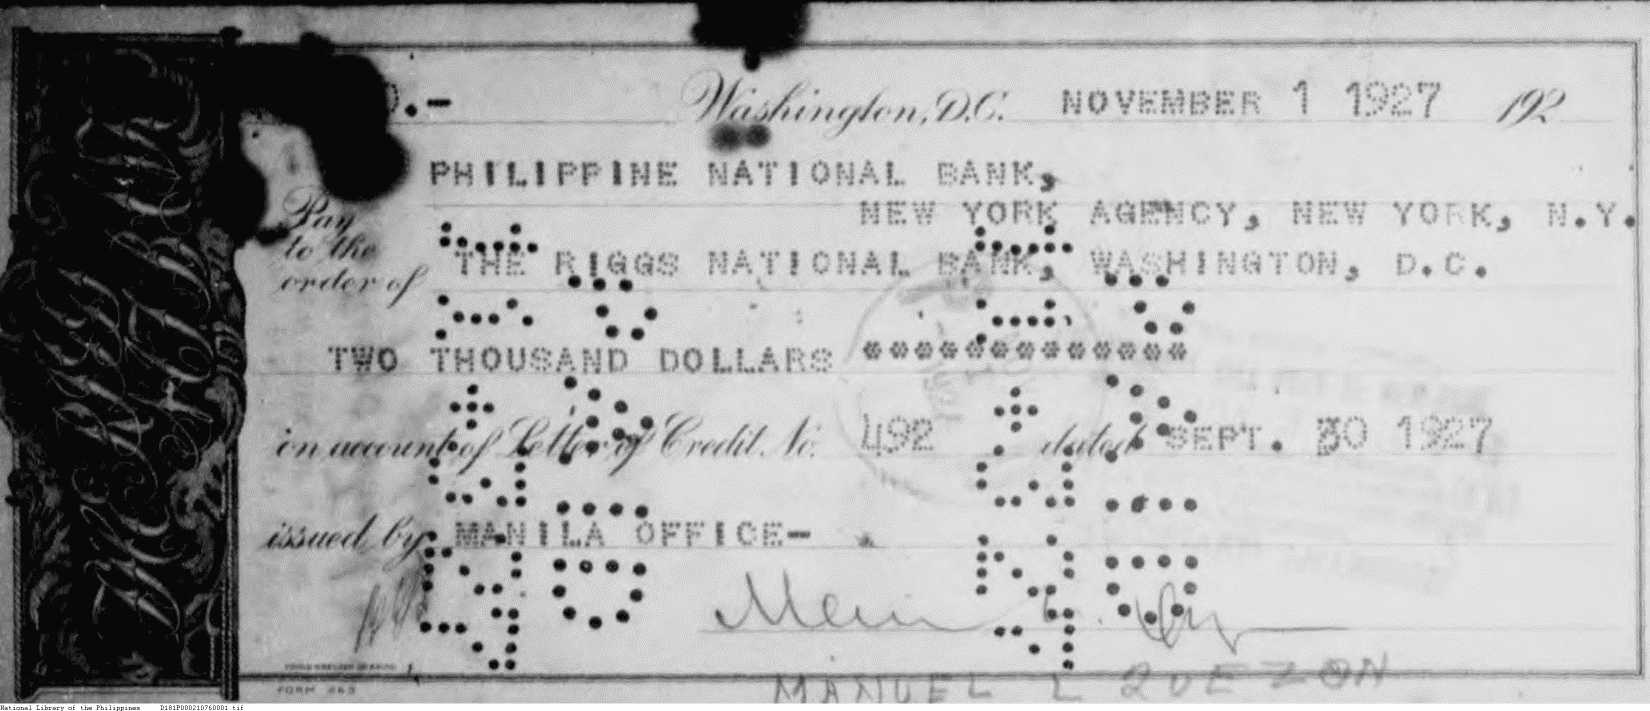 0.- Washington, D.C. NOVEMBER 1 1927 192
PHILIPPINE NATIONAL BANK,
NEW YORK AGENCY, NEW YORK, N.Y.
Pay
to the
order of THE RIGGS NATIONAL BANK, WASHINGTON, D.C.
TWO THOUSAND DOLLARS *************
on account of Letter of Credit No. 492 dated SEPT. 30 1927
issued by MANILA OFFICE-
MANUEL L QUEZON
FORM 263
National Library of the Philippines D181P000210760001.tif